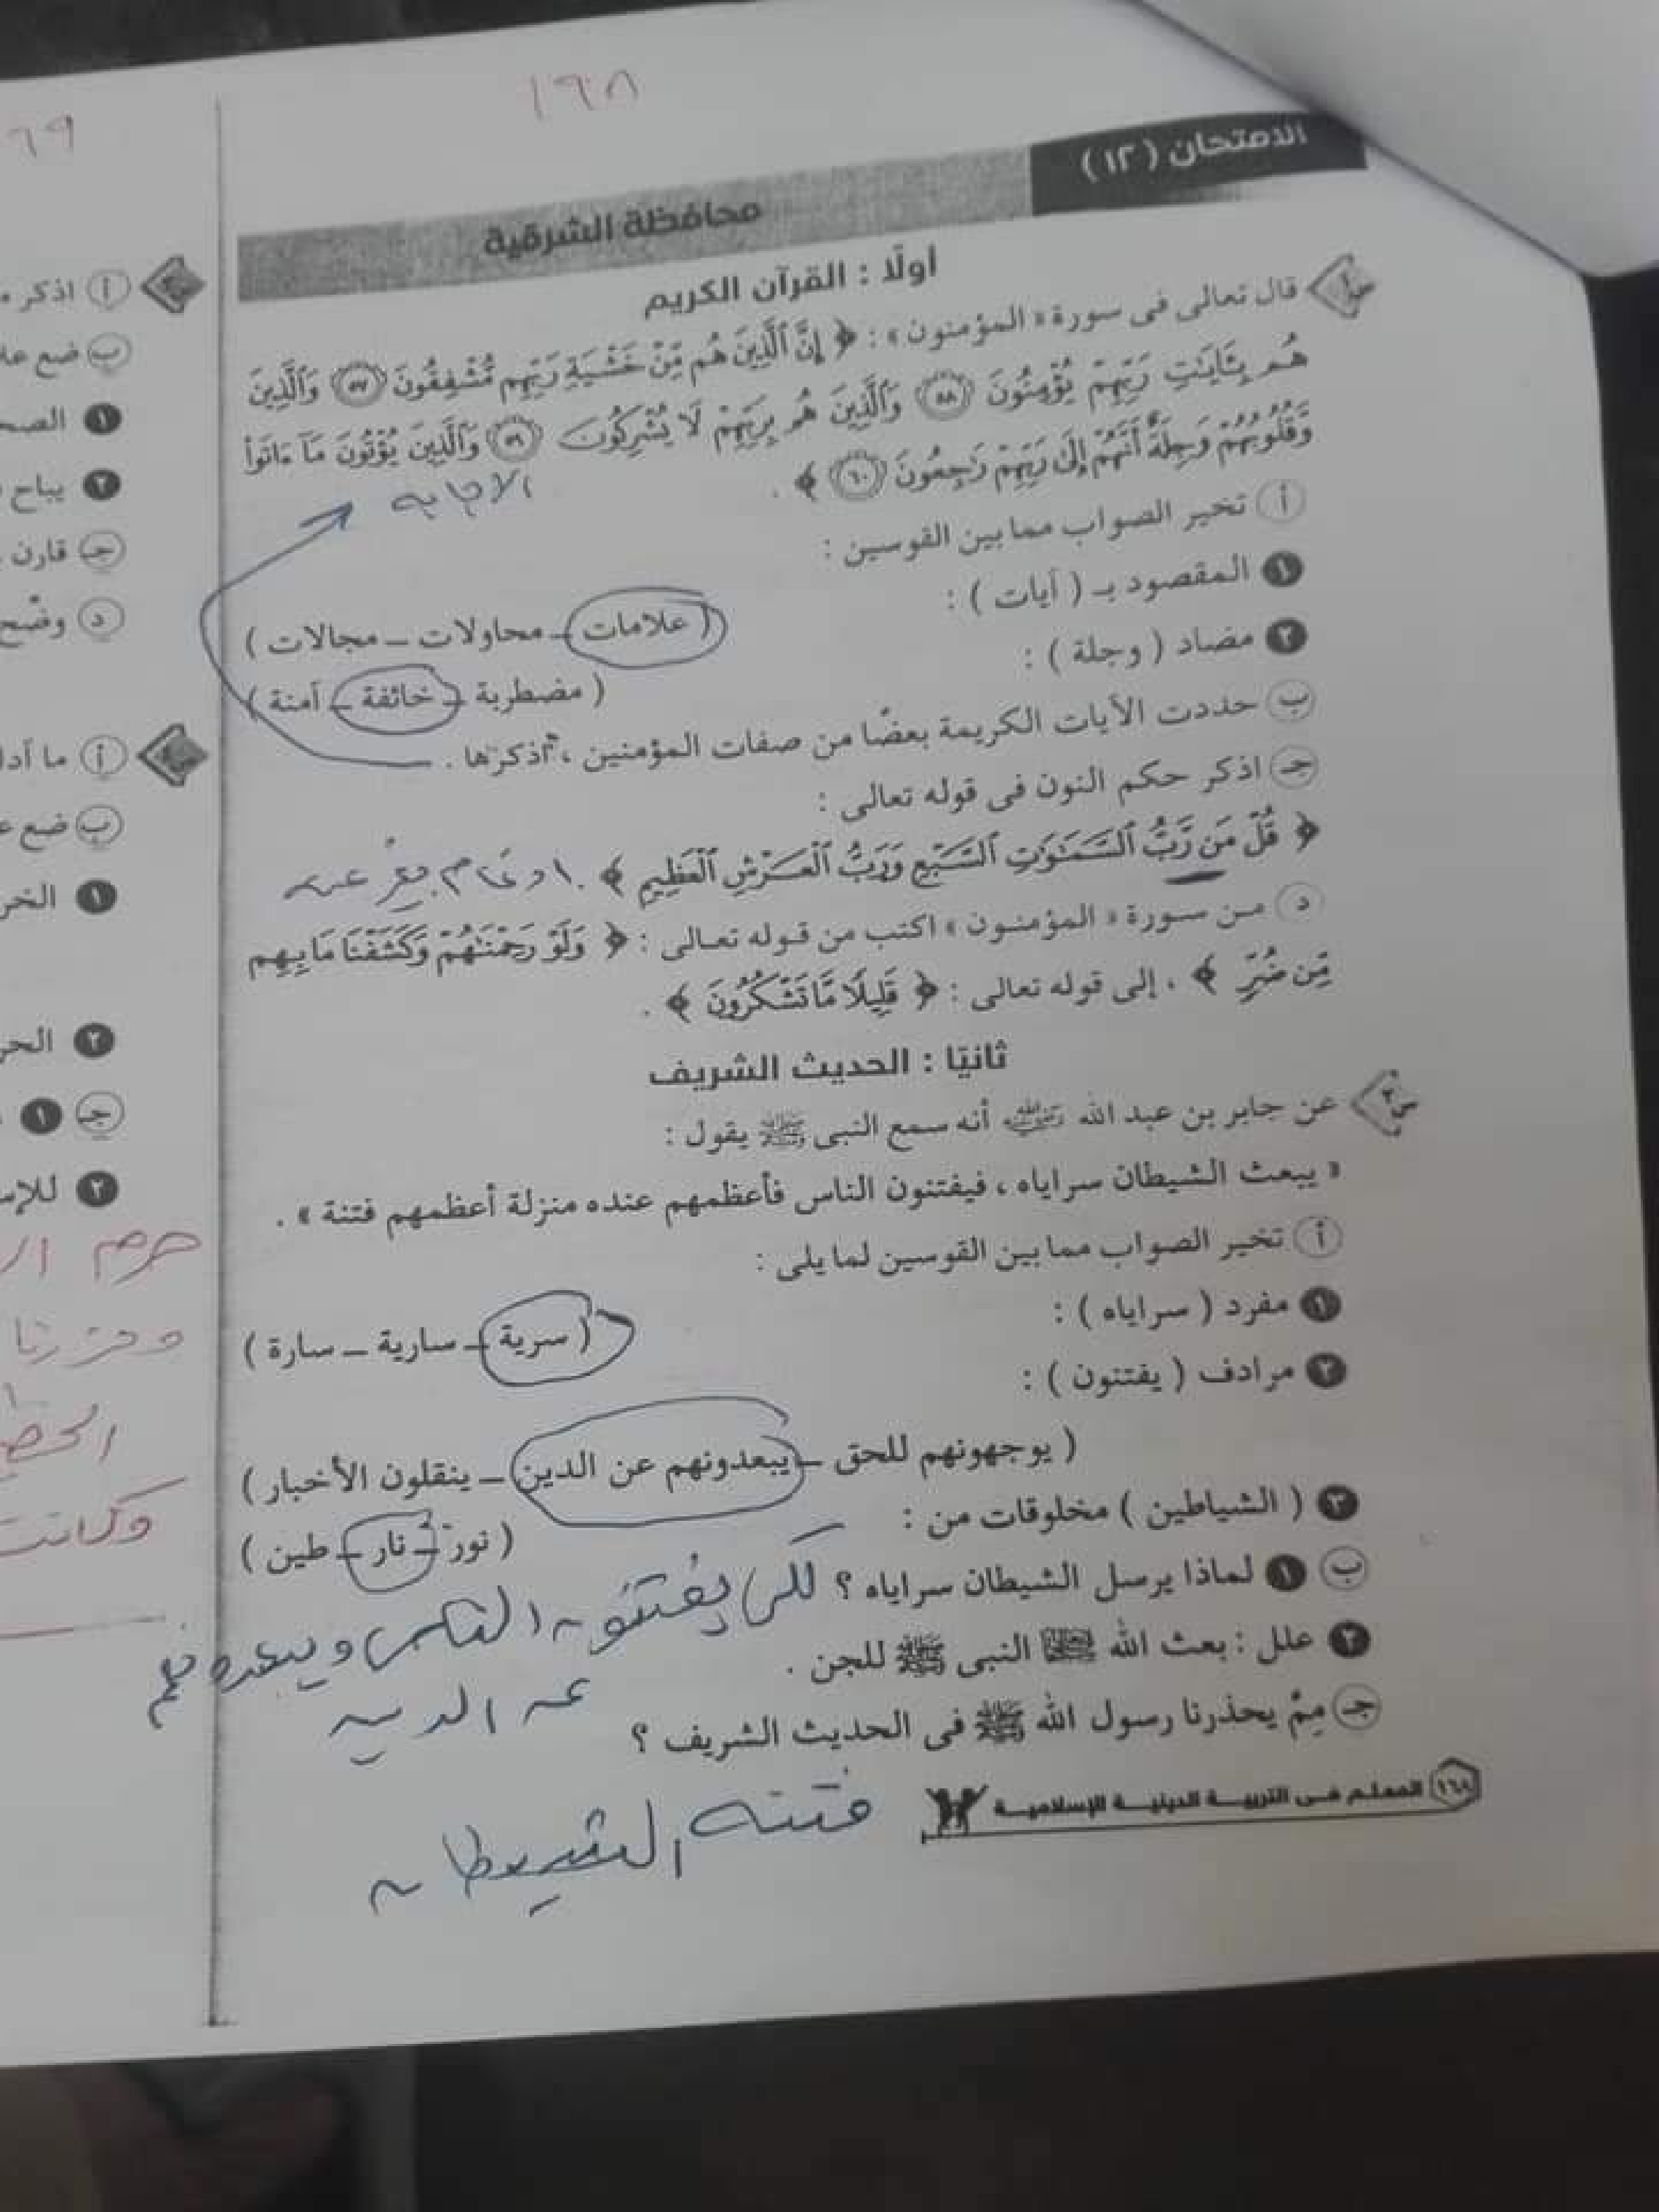 ١٦٨
الامتحان (١٢)
محافظة الشرقية
أولًا : القرآن الكريم
س١ قال تعالى فى سورة « المؤمنون » : ﴿ إِنَّ ٱلَّذِينَ هُم مِّنْ خَشْيَةِ رَبِّهِم مُّشْفِقُونَ ٥٧ وَٱلَّذِينَ
هُم بِـَٔايَـٰتِ رَبِّهِمْ يُؤْمِنُونَ ٥٨ وَٱلَّذِينَ هُم بِرَبِّهِمْ لَا يُشْرِكُونَ ٥٩ وَٱلَّذِينَ يُؤْتُونَ مَآ ءَاتَوا۟
وَّقُلُوبُهُمْ وَجِلَةٌ أَنَّهُمْ إِلَىٰ رَبِّهِمْ رَٰجِعُونَ ٦٠ ﴾ .
الاجابه
أ تخير الصواب مما بين القوسين :
١ المقصود بـ ( آيات ) : ( علامات ــ محاولات ــ مجالات )
٢ مضاد ( وجلة ) : ( مضطربة ــ خائفة ــ آمنة )
ب حددت الآيات الكريمة بعضًا من صفات المؤمنين ، اذكرها .
جـ اذكر حكم النون فى قوله تعالى :
﴿ قُلْ مَن رَّبُّ ٱلسَّمَـٰوَٰتِ ٱلسَّبْعِ وَرَبُّ ٱلْعَرْشِ ٱلْعَظِيمِ ﴾ . ادغام بغير غنه
د من سورة « المؤمنون » اكتب من قوله تعالى : ﴿ وَلَوْ رَحِمْنَـٰهُمْ وَكَشَفْنَا مَا بِهِم
مِّن ضُرٍّ ﴾ ، إلى قوله تعالى : ﴿ قَلِيلًا مَّا تَشْكُرُونَ ﴾ .
ثانيًا : الحديث الشريف
س٢ عن جابر بن عبد الله رضي الله عنه أنه سمع النبى ﷺ يقول :
« يبعث الشيطان سراياه ، فيفتنون الناس فأعظمهم عنده منزلة أعظمهم فتنة » .
أ تخير الصواب مما بين القوسين لما يلى :
١ مفرد ( سراياه ) : ( سرية ــ سارية ــ سارة )
٢ مرادف ( يفتنون ) :
( يوجهونهم للحق ــ يبعدونهم عن الدين ــ ينقلون الأخبار )
٣ ( الشياطين ) مخلوقات من : ( نور ــ نار ــ طين )
ب ١ لماذا يرسل الشيطان سراياه ؟ لكى يفتنون الناس ويبعدوهم
عن الدين
٢ علل : بعث الله النبى ﷺ للجن .
جـ مِمَّ يحذرنا رسول الله ﷺ فى الحديث الشريف ؟
فتنه الشيطان
١٦٨ المعلم فى التربية الدينية الإسلامية
٦٩
أ اذكر
ب ضع
١
٢ يباح
جـ قارن
د وضح
أ ما
ب ضع
١
٢
جـ ١
٢
حرم
وكانت